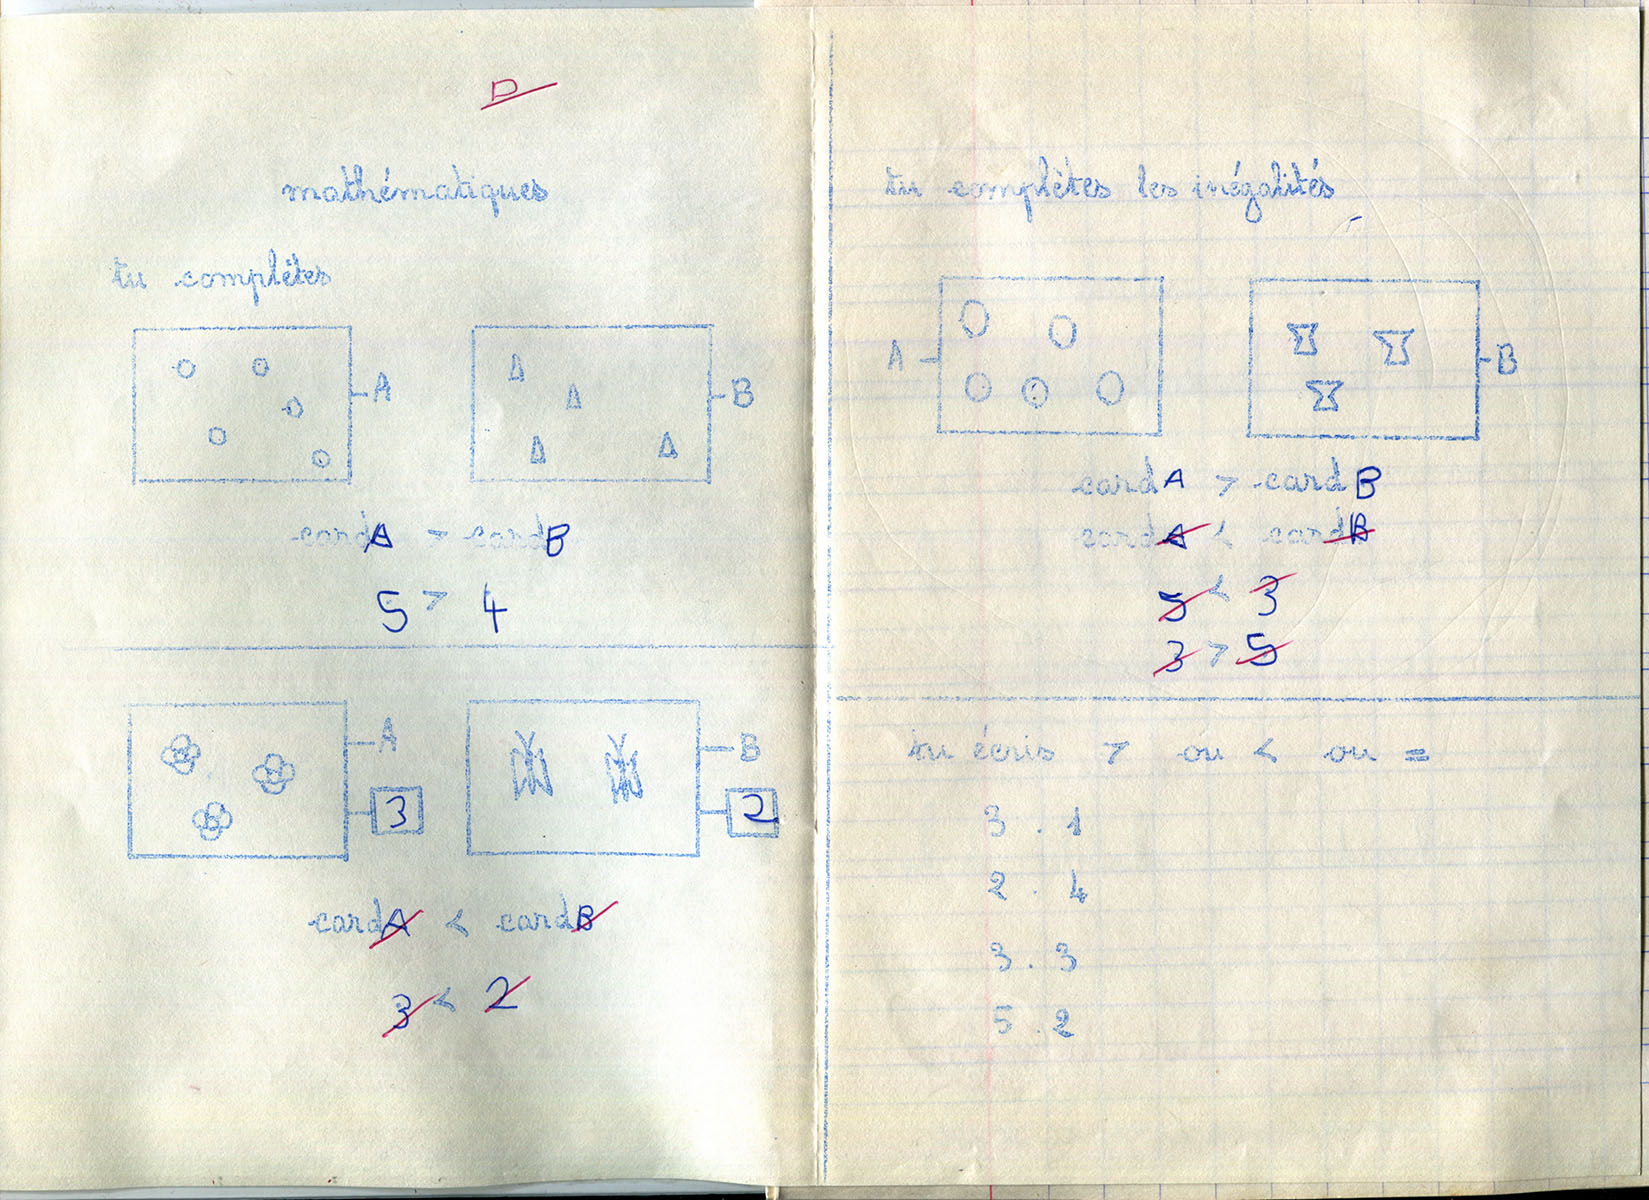 D
mathématiques
tu complètes
A
B
card A > card B
5 > 4
A
3
B
2
card A < card B
3 < 2
tu complètes les inégalités
A
B
card A > card B
card A < card B
5 < 3
3 > 5
tu écris > ou < ou =
3 . 1
2 . 4
3 . 3
5 . 2